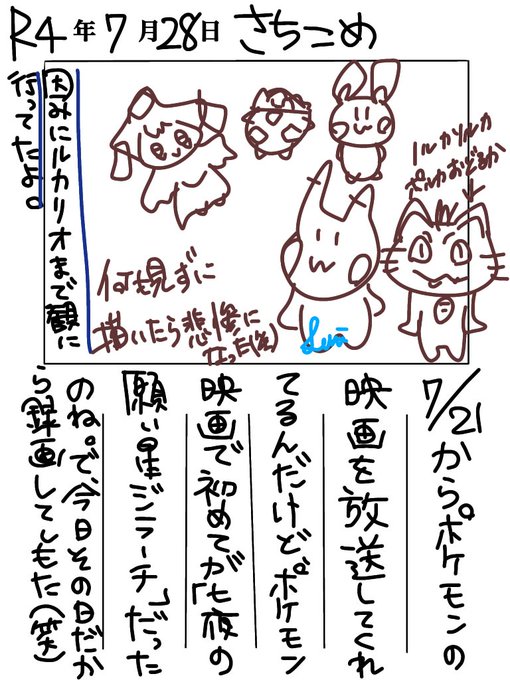 R4年7月28日 さちこめ
因みにルカリオまで観に
行ってたよ。
ノルカソルカ
ポルカおどるか
何も見ずに
描いたら悲惨に
なった(笑)
7/21からポケモンの
映画を放送してくれ
てるんだけど、ポケモン
映画で初めてが「七夜の
願い星ジラーチ」だった
のね。で、今日その日だか
ら録画してしもた(笑)